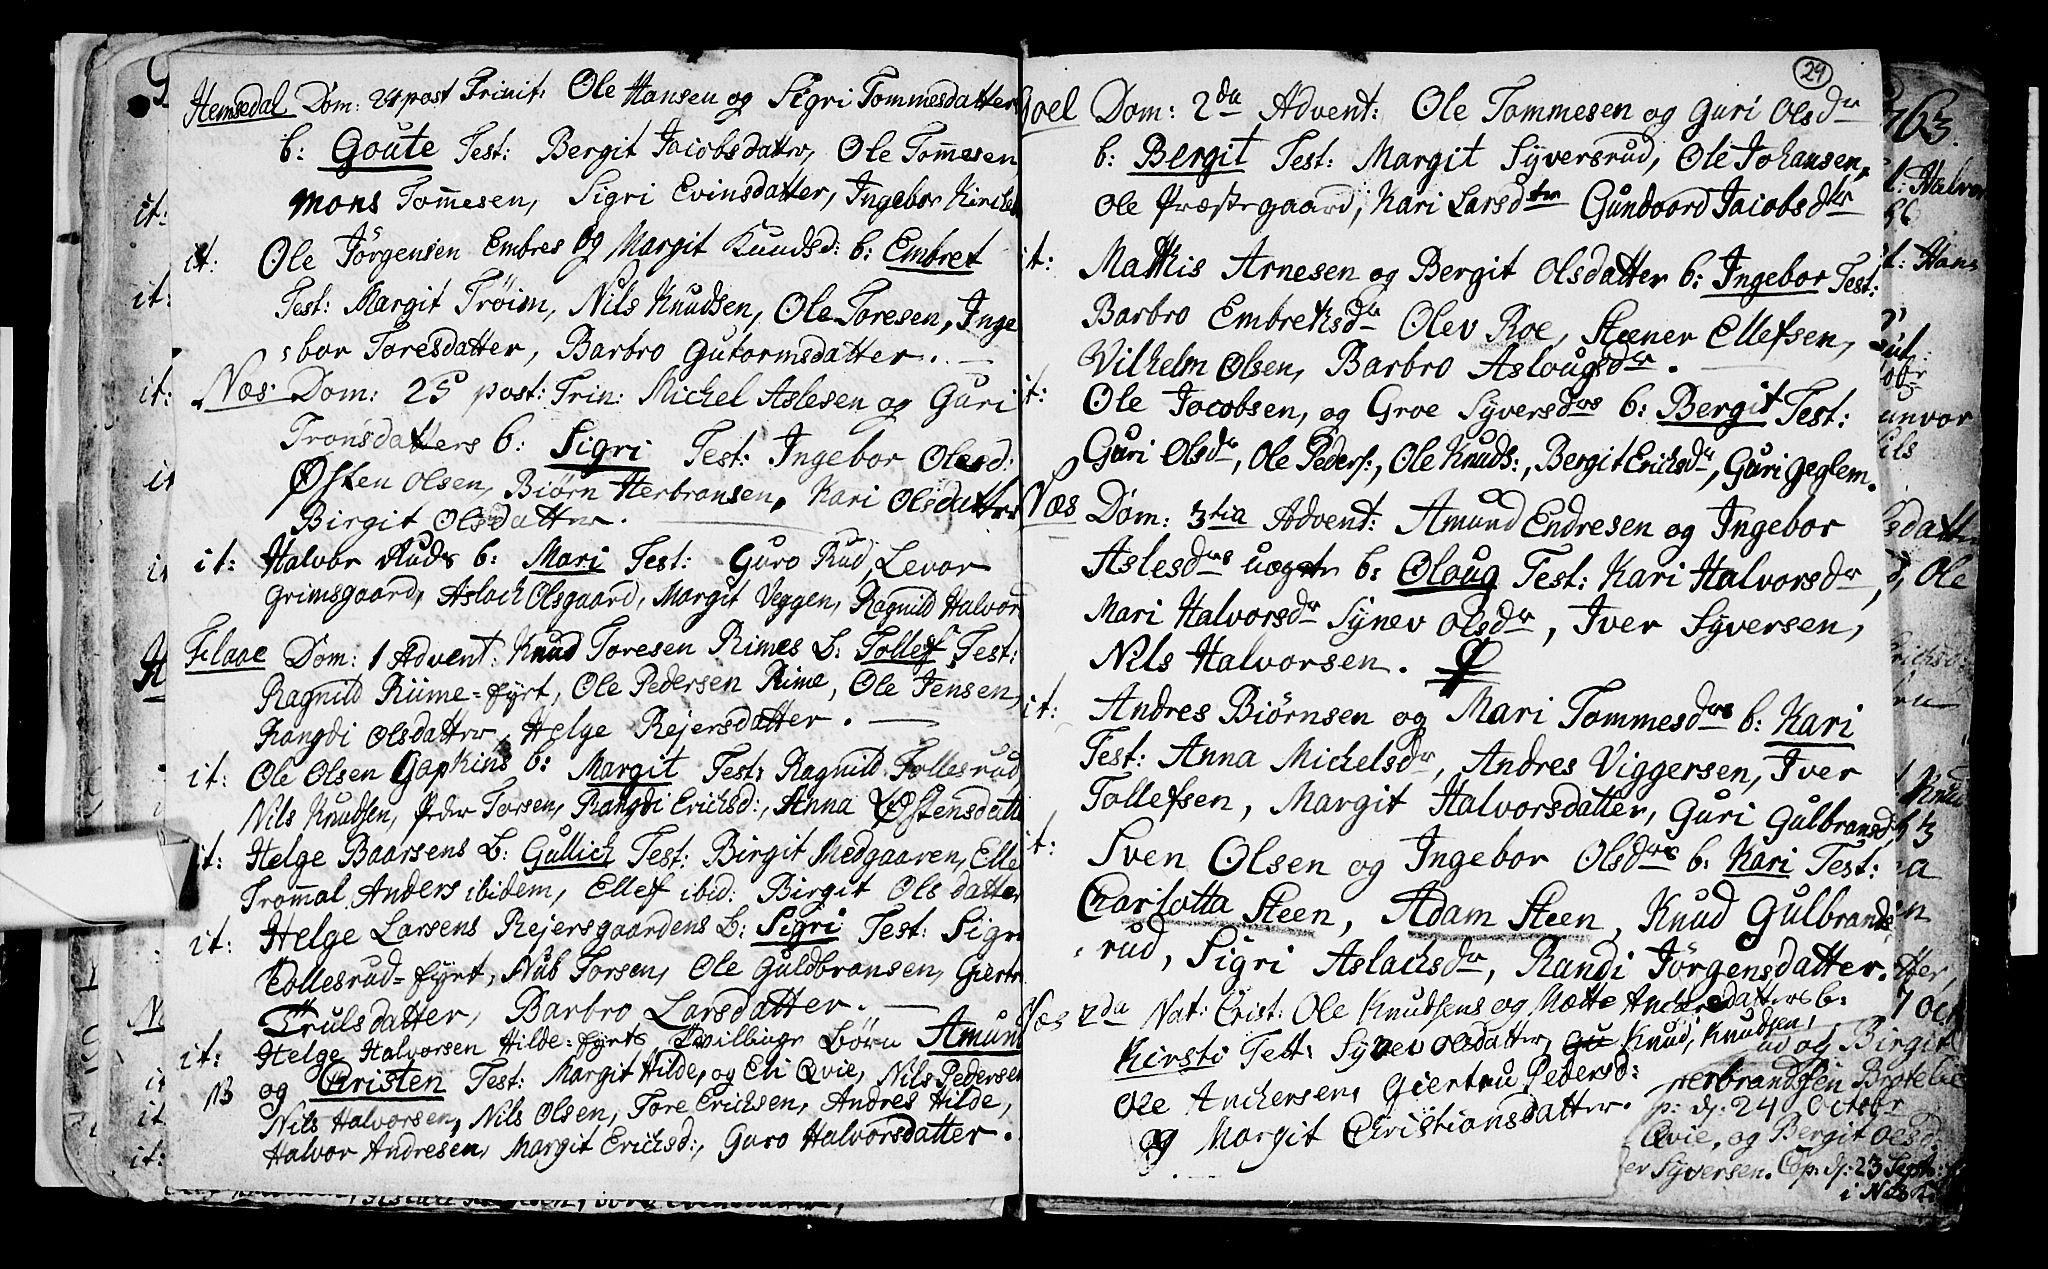 Hemsedal Dom: 24 post Trinit: Ole Hansen og Sigri Tommesdatter
b: Goute Test: Bergit Jacobsdatter, Ole Tom̄esen,
Mons Tom̄esen, Sigri Evinsdatter, Ingebor
it: Ole Jörgensen Embres og Margit Knudsd: b: Embret
Test: Margit Tröim, Nils Knudsen, Ole Toresen, Inge
bor Toresdatter, Barbro Gutormsdatter.
Næs Dom: 25 post: Trin: Michel Aslesen og Guri
Tronsdatters b: Sigri Test: Ingebor Olesd:
Østen Olsen, Biørn Herbransen, Kari Olsdatter
Birgit Olsdatter.
it: Halvor Ruds b: Mari Test: Guro Rud, Levor
Grimsgaard, Aslach Olsgaard, Margit Veggen, Ragnild Halvor
Flaae Dom: 1 Advent: Knud Toresen Rimes b: Tollef Test:
Ragnild Riime=fyrt, Ole Pedersen Rime, Ole Jensen,
Rangdi Olsdatter, Helge Rejersdatter.
it: Ole Olsen Gapkins b: Margit Test: Ragnild Follesrud,
Nils Knudsen, Peder Torsen, Rangdi Erichsd:, Anna Østensdatte
it: Helge Baarsens b: Gullich Test: Birgit Medgaaren, Elle
Trom̄al, Anders ibidem, Ellef ibid: Birgit Olsdatter
it: Helge Larsens Rejersgaardens b: Sigri Test: Sigri
Follesrud=fyrt, Nub Torsen, Ole Guldbransen, Giertr
Trulsdatter, Barbro Larsdatter.
it: Helge Halvorsen Hilde=fyrts Tvillinge Børn Amund
NB og Christen Test: Margit Hilde, og Eli Qvie, Nils Pedersen
Nils Halvorsen, Nils Olsen, Tore Erichsen, Andres Hilde,
Halvor Andresen, Margit Erichsd:, Guro Halvorsdatter.
29
Goel Dom: 2da Advent: Ole Tommesen og Guri Olsdr
b: Bergit Test: Margit Syversrud, Ole Johansen,
Ole Præstegaard, Kari Larsdter Gundvord Jacobsdtr
it: Mathis Arnesen og Bergit Olsdatter b: Ingebor Test:
Barbro Embreksdr Olev Roe, Steener Ellefsen,
Vilhelm Olsen, Barbro Aslougsdr.
it: Ole Jacobsen, og Groe Syversdrs b: Bergit Test:
Guri Olsdr, Ole Peders:, Ole Knuds:, Bergit Erichsdr, Guri Geglem.
Næs Dom: 3tia Advent: Amund Endresen og Ingebor
Aslesdrs uægte b: Oloug Test: Kari Halvorsdr,
Mari Halvorsdr Synev Olsdr, Iver Syversen,
Nils Halvorsen.
it: Andres Biörnsen og Mari Tommesdrs b: Kari
Test: Anna Michelsdr, Andres Viggersen, Iver
Tollefsen, Margit Halvorsdatter, Guri Gulbransd
it: Sven Olsen og Ingebor Olsdrs b: Kari Test:
Charlotta Steen, Adam Steen, Knud Gulbrands
rud, Sigri Aslachsdr, Randi Jörgensdatter.
Næs 2da Nat: Crist: Ole Knudsens og Mætte Anchersdatters b:
Kirsti Test: Synev Olsdatter, Knud Knudsen,
Ole Anchersen, Giertru Pedersd:
og Margit Christiansdatter.
763.
t: Halvor
t: Hans
unvor
Nils
sdatter
Ole
Knud
7 Oct
og Birgit
herbrandsen Brotelie
p: d: 24 Octobr
Qvie, og Bergit Olsd:
Syversen. Cop: d: 23 Sept:
i Nils